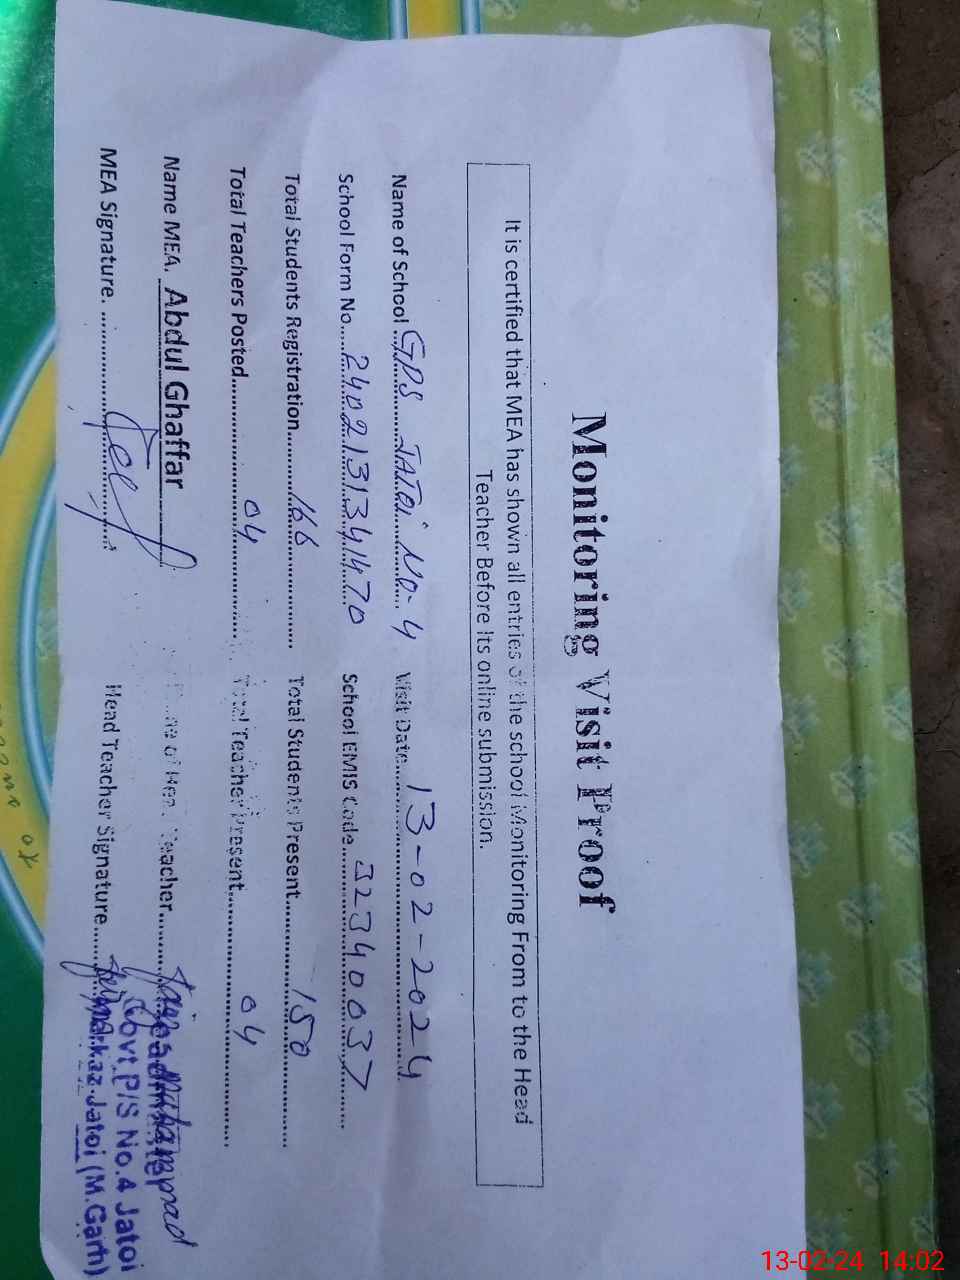 Monitoring Visit Proof
It is certified that MEA has shown all entries of the school Monitoring From to the Head
Teacher Before Its online submission.
Name of School GPS JATOI NO-4 Visit Date 13-02-2024
School Form No 2402131341470 School EMIS Code 32340037
Total Students Registration 166 Total Students Present 150
Total Teachers Posted 04 Total Teacher Present 04
Name MEA. Abdul Ghaffar Name of Head Teacher
MEA Signature. Head Teacher Signature
Govt P/S No.4 Jatoi
Markaz Jatoi (M.Garh)
13-02-24 14:02